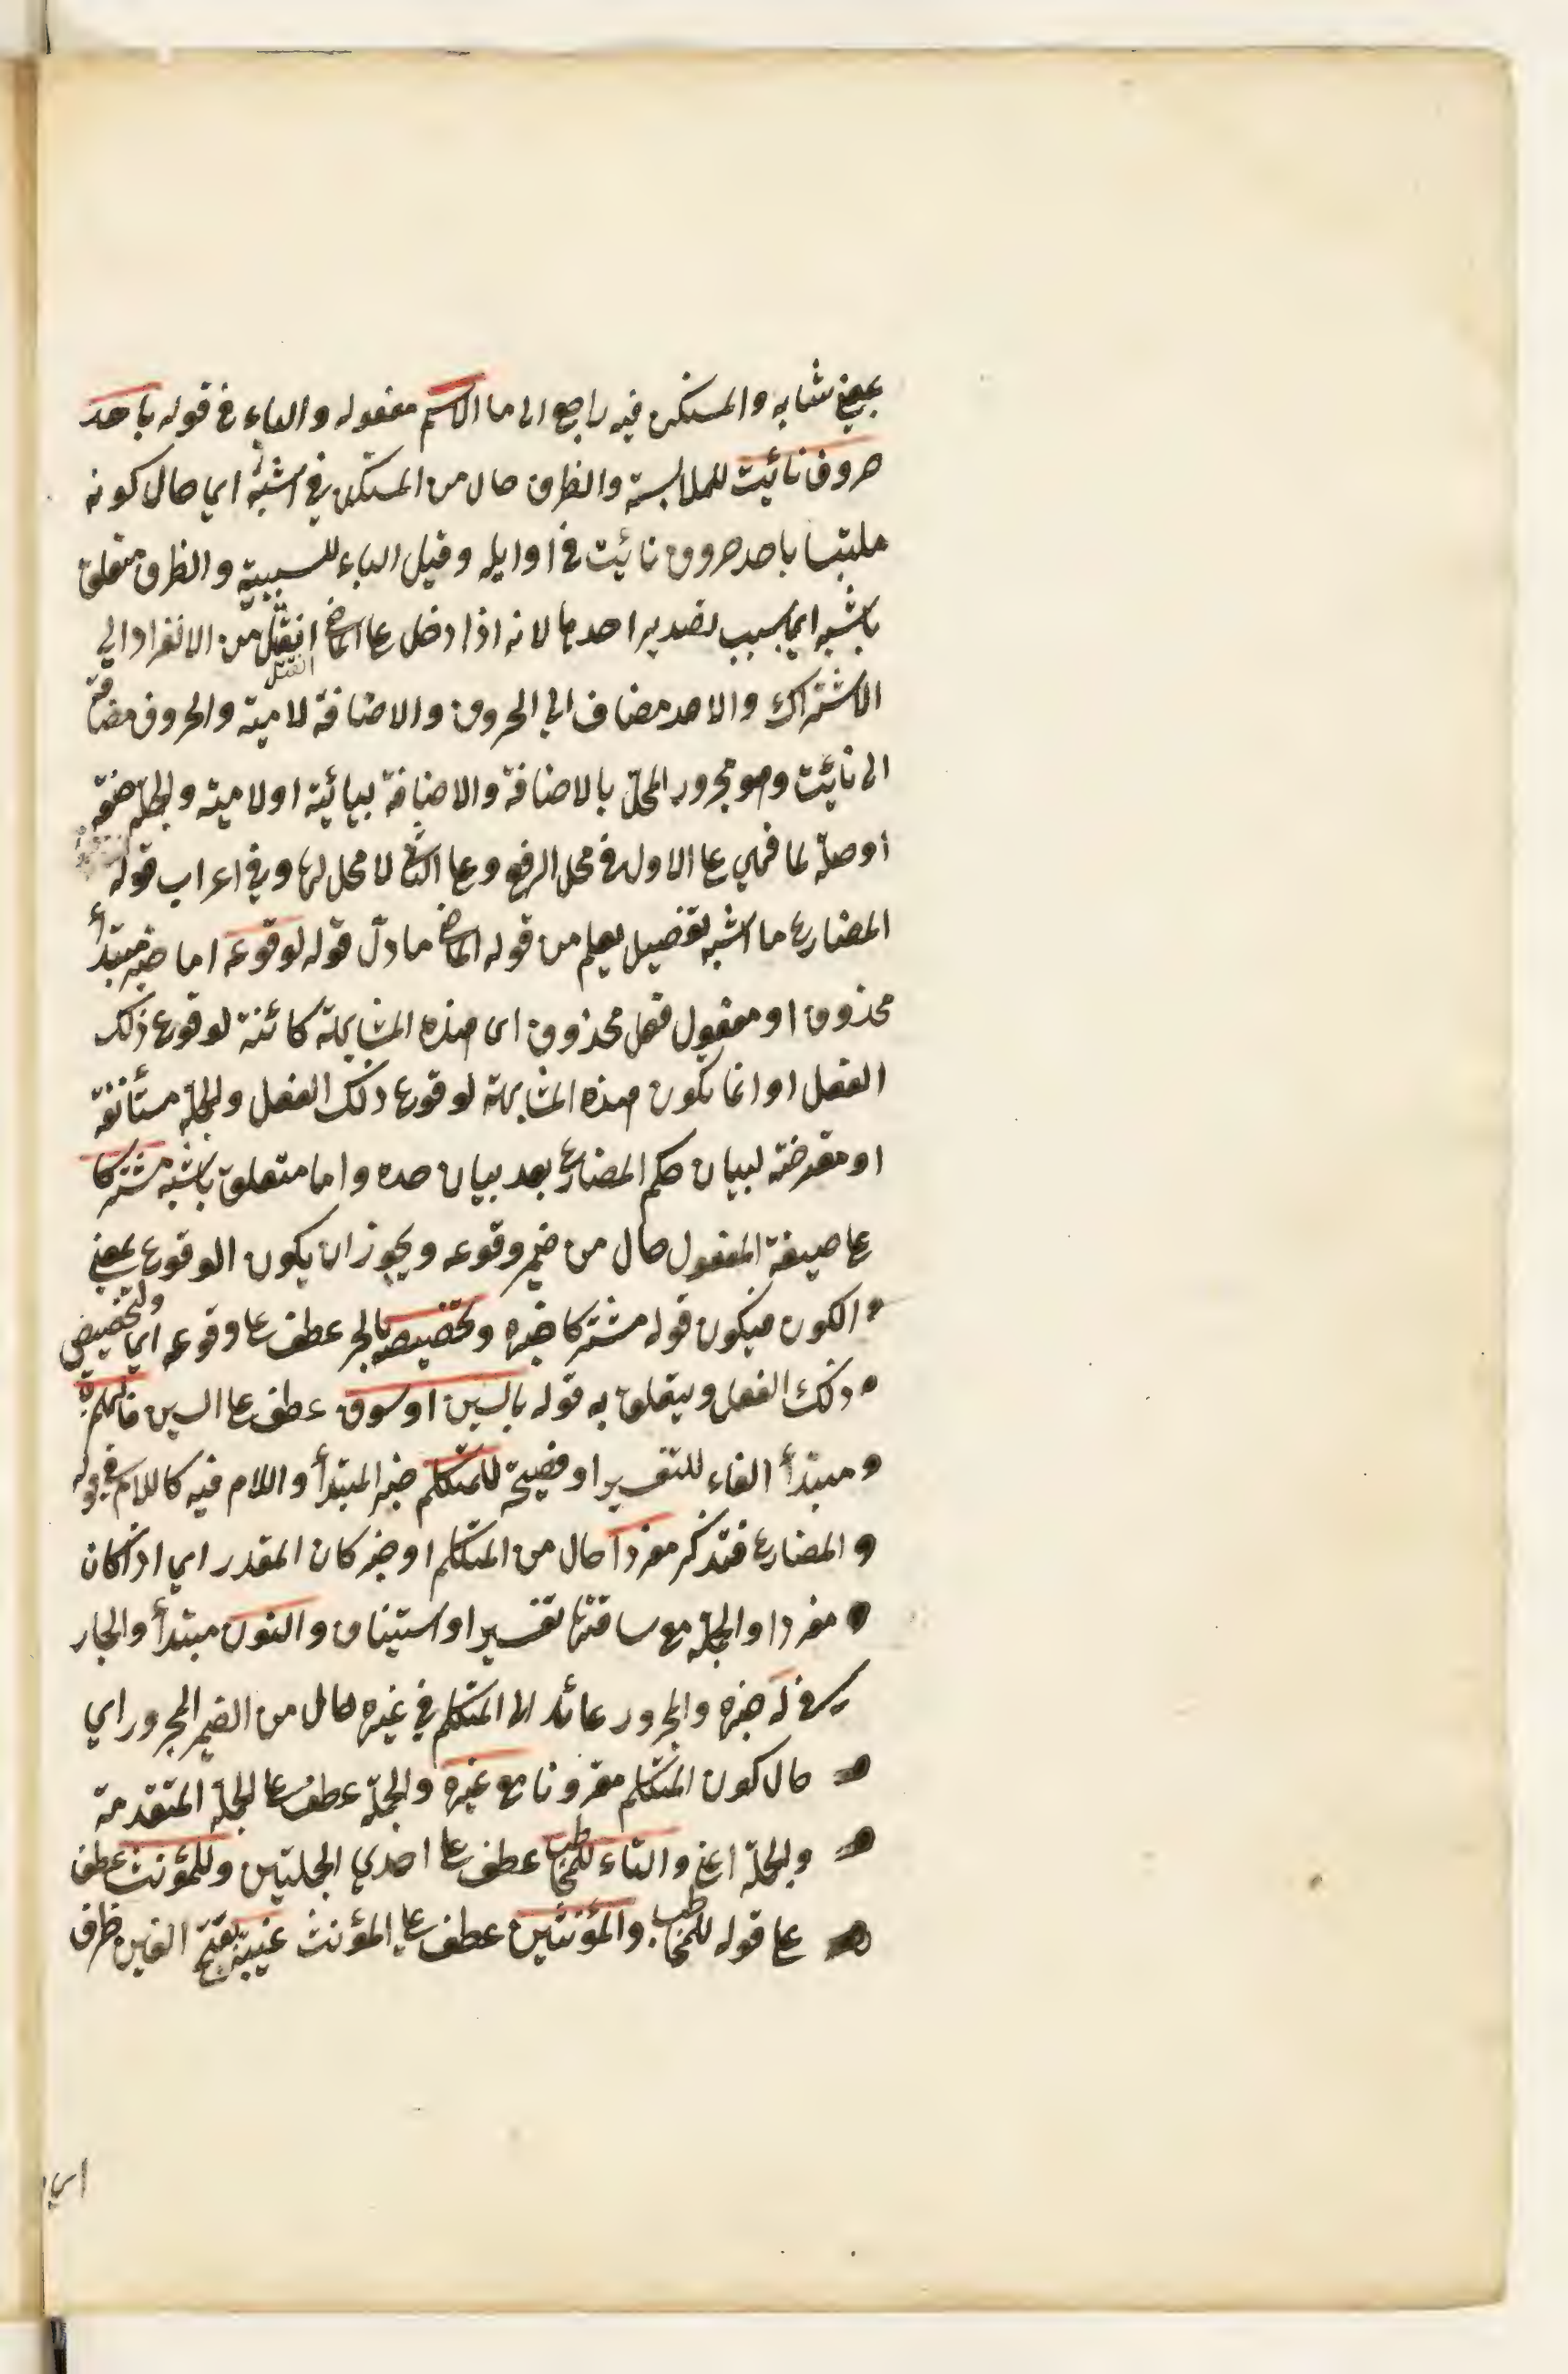 بمعنى شابه والمستكن فيه راجع الى ما الاسم مفعوله والباء في قوله باحد
حروف نائيت للملابسة والظرف حال من المستكن في اشبه اي حال كونه
ملتبسا باحد حروف نائيت في اوايله وقيل الباء للسببية والظرف متعلق
باشبه اي بسبب تصدير احدها لانه اذا دخل على الماضي انتقل من الانفراد الى
الاشتراك والاحد مضاف الى الحروف والاضافة لامية والحروف مضافة
الى نائيت وهو مجرور المحل بالاضافة والاضافة بيانية او لامية والجملة صفة
او صلة لما فهي على الاول في محل الرفع وعلى الثاني لا محل لها وفي اعراب قوله
المضارع ما اشبه تفصيل يعلم من قوله الماضي ما دل قوله لوقوعه اما خبر مبتدأ
محذوف او معمول فعل محذوف اى هذه المشابهة كائنة لوقوع ذلك
الفعل او انما تكون هذه المشابهة لوقوع ذلك الفعل والجملة مستأنفة
او معترضة لبيان حكم المضارع بعد بيان حده واما متعلق باشبه مشتركا
على صيغة المفعول حال من ضمير وقوعه ويجوز ان يكون الوقوع بمعنى
الكون فيكون قوله مشتركا خبره وتخصيصه بالجر عطف على وقوعه اي ولتخصيص
ذلك الفعل ويتعلق به قوله بالسين او سوف عطف على السين فالهمزة
مبتدأ الفاء للتفسير او فصيحة للمتكلم خبر المبتدأ واللام فيه كاللام في قوله
والمضارع فتذكر مفردا حال من المتكلم او خبر كان المقدر اي اذا كان
مفردا والجملة مع ساقتها تفسير او استيناف والنون مبتدأ والجار
في له خبره والمجرور عائد الى المتكلم في غيره حال من الضمير المجرور اي
حال كون المتكلم مقرونا مع غيره والجملة عطف على الجملة المتقدمة
والجملة اعني والتاء للمخاطب عطف على احدي الجملتين وللمؤنث عطف
على قوله للمخاطب والمؤنثين عطف على المؤنث غيبة بفتح الغين ظرف